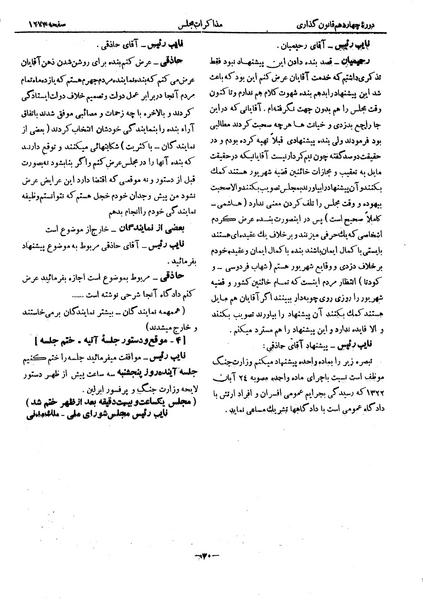 دورهٔ چهاردهم قانون گذاری
مذاکرات مجلس
صفحه ۱۲۷۳
نایب رئیس ـ آقای رحیمیان.
رحیمیان ـ قصد بنده دادن این پیشنهاد نبود فقط
تذکری داشتم که خدمت آقایان عرض کنم این بود که باعث
شد این پیشنهاد را بدهم بنده شهوت کلام هم ندارم و
وقت مجلس را هم بدون جهت نگرفته‌ام. آقایانی که در این
جا راجع بدزدی و خیانت ها هر چه صحبت کردند مطالبی
بود فرمودند ولی بنده پیشنهادی قبلاً تهیه کرده بودم و در
حقیقت دوسد گفته چون نیم کردار نیست آقایانیکه در حقیقت
مایل به تعقیب و مجازات خائنین قضیه شهریور هستند کمک
بکنند و آن پیشنهاد را بیاورند بمجلس تصویب بکنند و الا صحبت
بیهوده و وقت مجلس را تلف کردن معنی ندارد (هاشمی ـ
کاملاً صحیح است) پس در اینصورت بنده عرض میکردم
اشخاصی که یک حرفی میزنند و بر خلاف یک عقیده‌ای هستند
بایستی با کمال ایمان باشند بنده با کمال ایمان و عقیده خودم
بر خلاف دزدی و وقایع شهریور هستم (شهاب فردوسی ـ و
کودتا) انتظار مردم اینست که تمام خائنین کشور و قضیه
شهریور را روزی روی چوبه‌دار ببینند اگر آقایان هم مایل
هستند کمک بکنند آن پیشنهاد را بیاورند تصویب بکنند
و الا فایده ندارد و این پیشنهاد را هم مسترد میکنم.
نایب رئیس ـ پیشنهاد آقای حاذقی:
تبصره زیر را بماده واحده پیشنهاد میکنم وزارت جنگ
موظف است نسبت باجرای ماده واحده مصوبه ۲۴ آبان
۱۳۲۲ که رسیدگی بجرایم عمومی افسران و افراد ارتش با
دادگاه عمومی است با دادگاهها تشریک مساعی نماید.
نایب رئیس ـ آقای حاذقی.
حاذقی ـ عرض کنم بنده برای روشن شدن ذهن آقایان
عرض میکنم که بنده نماینده مردم جهرم هستم که یازده ماه تمام
مردم آنجا در برابر عمل دولت و تصمیم خلاف دولت ایستادگی
کردند و بالاخره با چه زحمات و مصائبی موفق شدند باتفاق
آراء بنده را بنمایندگی خودشان انتخاب کردند (بعضی از
نمایندگان ـ با اکثریت) شکایتهائی میکنند و توقع دارند
که بنده آنها را در مجلس عرض کنم و اگر بنا بشود نه بصورت
قبل از دستور و نه موقعی که اقتضا دارد این عرایض عرض
نشود من پیش وجدان خودم خجل هستم که نتوانستم وظیفه
نمایندگی خودم را انجام بدهم
بعضی از نمایندگان ـ خارج از موضوع است
نایب رئیس ـ آقای حاذقی مربوط به موضوع پیشنهاد
بفرمائید.
حاذقی ـ مربوط بموضوع است اجازه بفرمائید عرض
کنم دادگاه آنجا شرحی نوشته است.....
(همهمه نمایندگان ـ بیشتر نمایندگان برمی‌خاستند
و خارج میشدند)
[۴ ـ موقع و دستور جلسهٔ آتیه ـ ختم جلسه]
نایب رئیس ـ موافقت میفرمائید جلسه را ختم کنیم
جلسهٔ آینده روز پنجشنبه سه ساعت پیش از ظهر دستور
لایحه وزارت جنگ و پرفسور ابرلین.
(مجلس یکساعت و بیست دقیقه بعد از ظهر ختم شد)
نایب رئیس مجلس شورای ملی ـ ملک‌مدنی